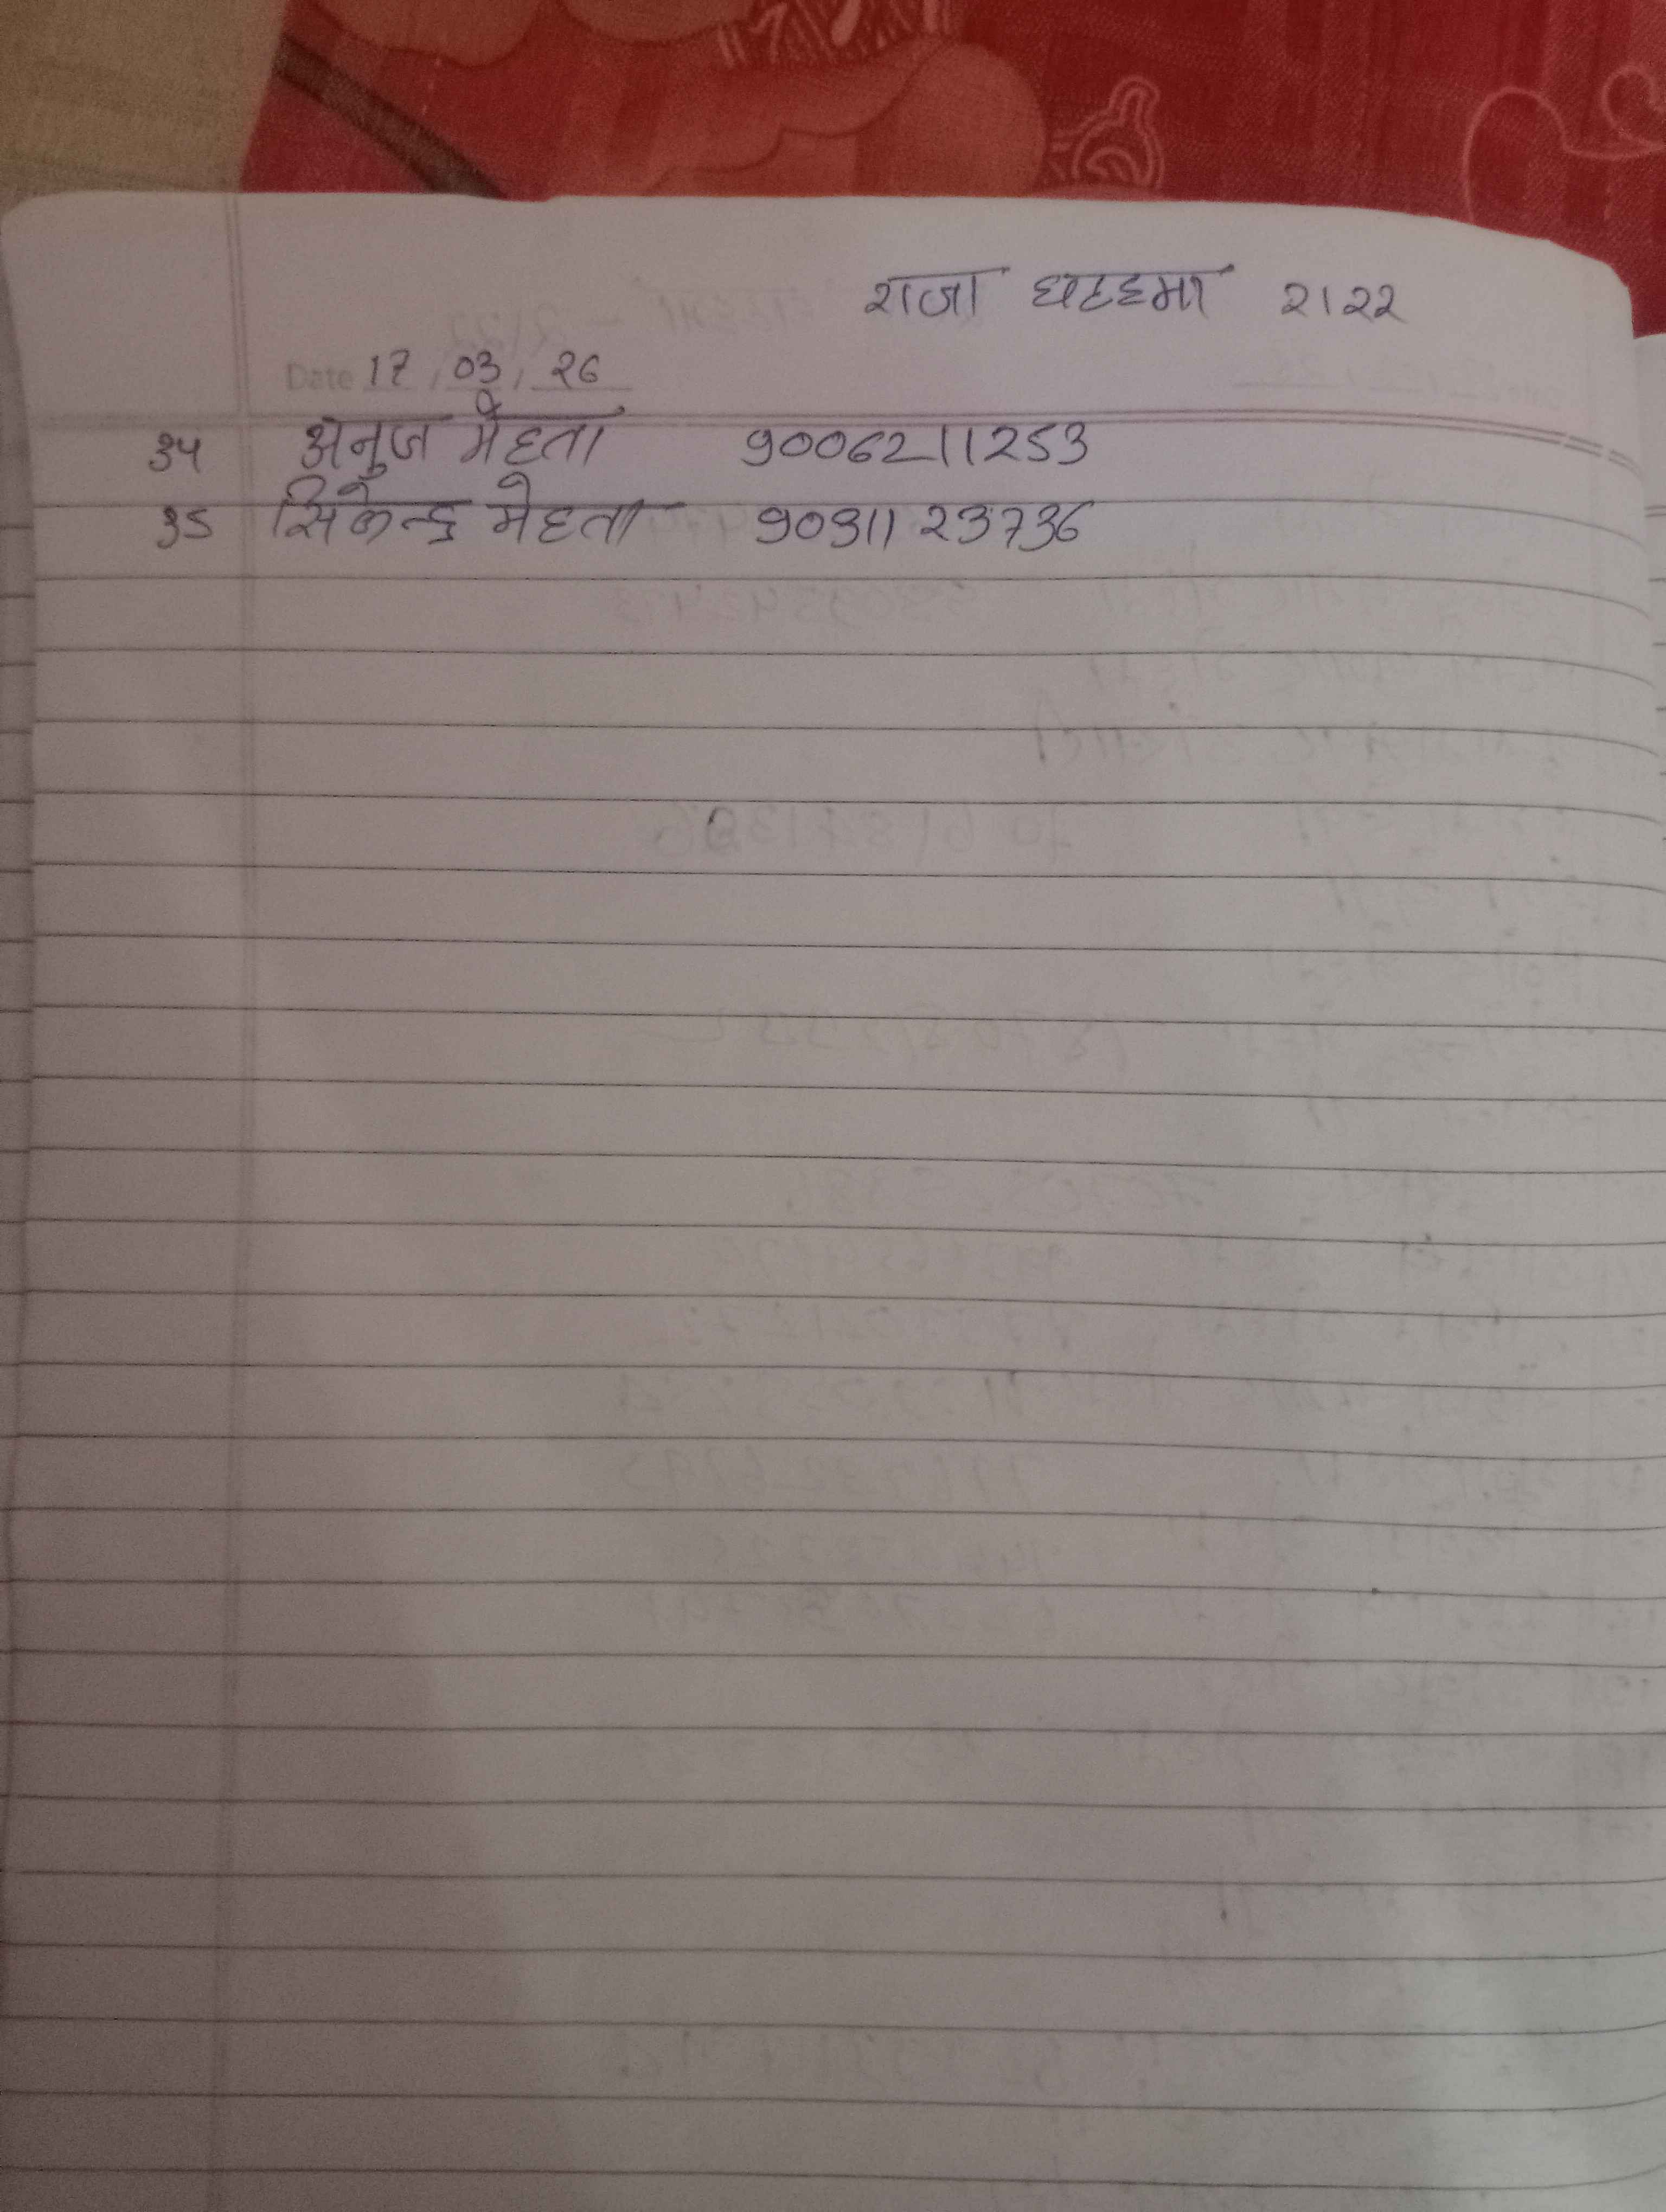 राजा घटहमा २।२२
Date 17, 03, २6
३५ अनुज मेहता 9006211253
३5 सिकेन्द्र मेहता 9031123736